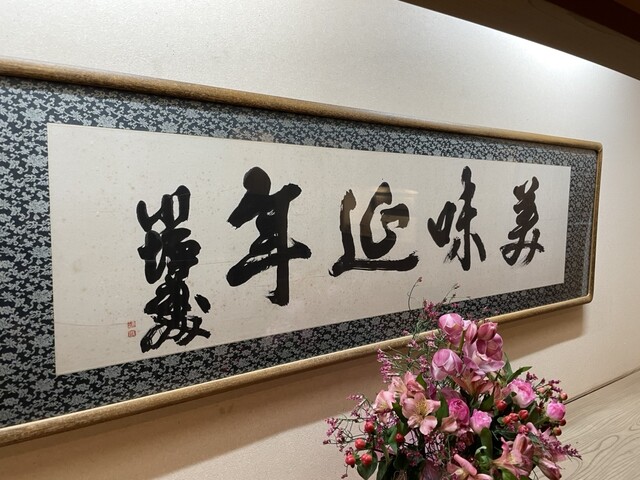 美味延年